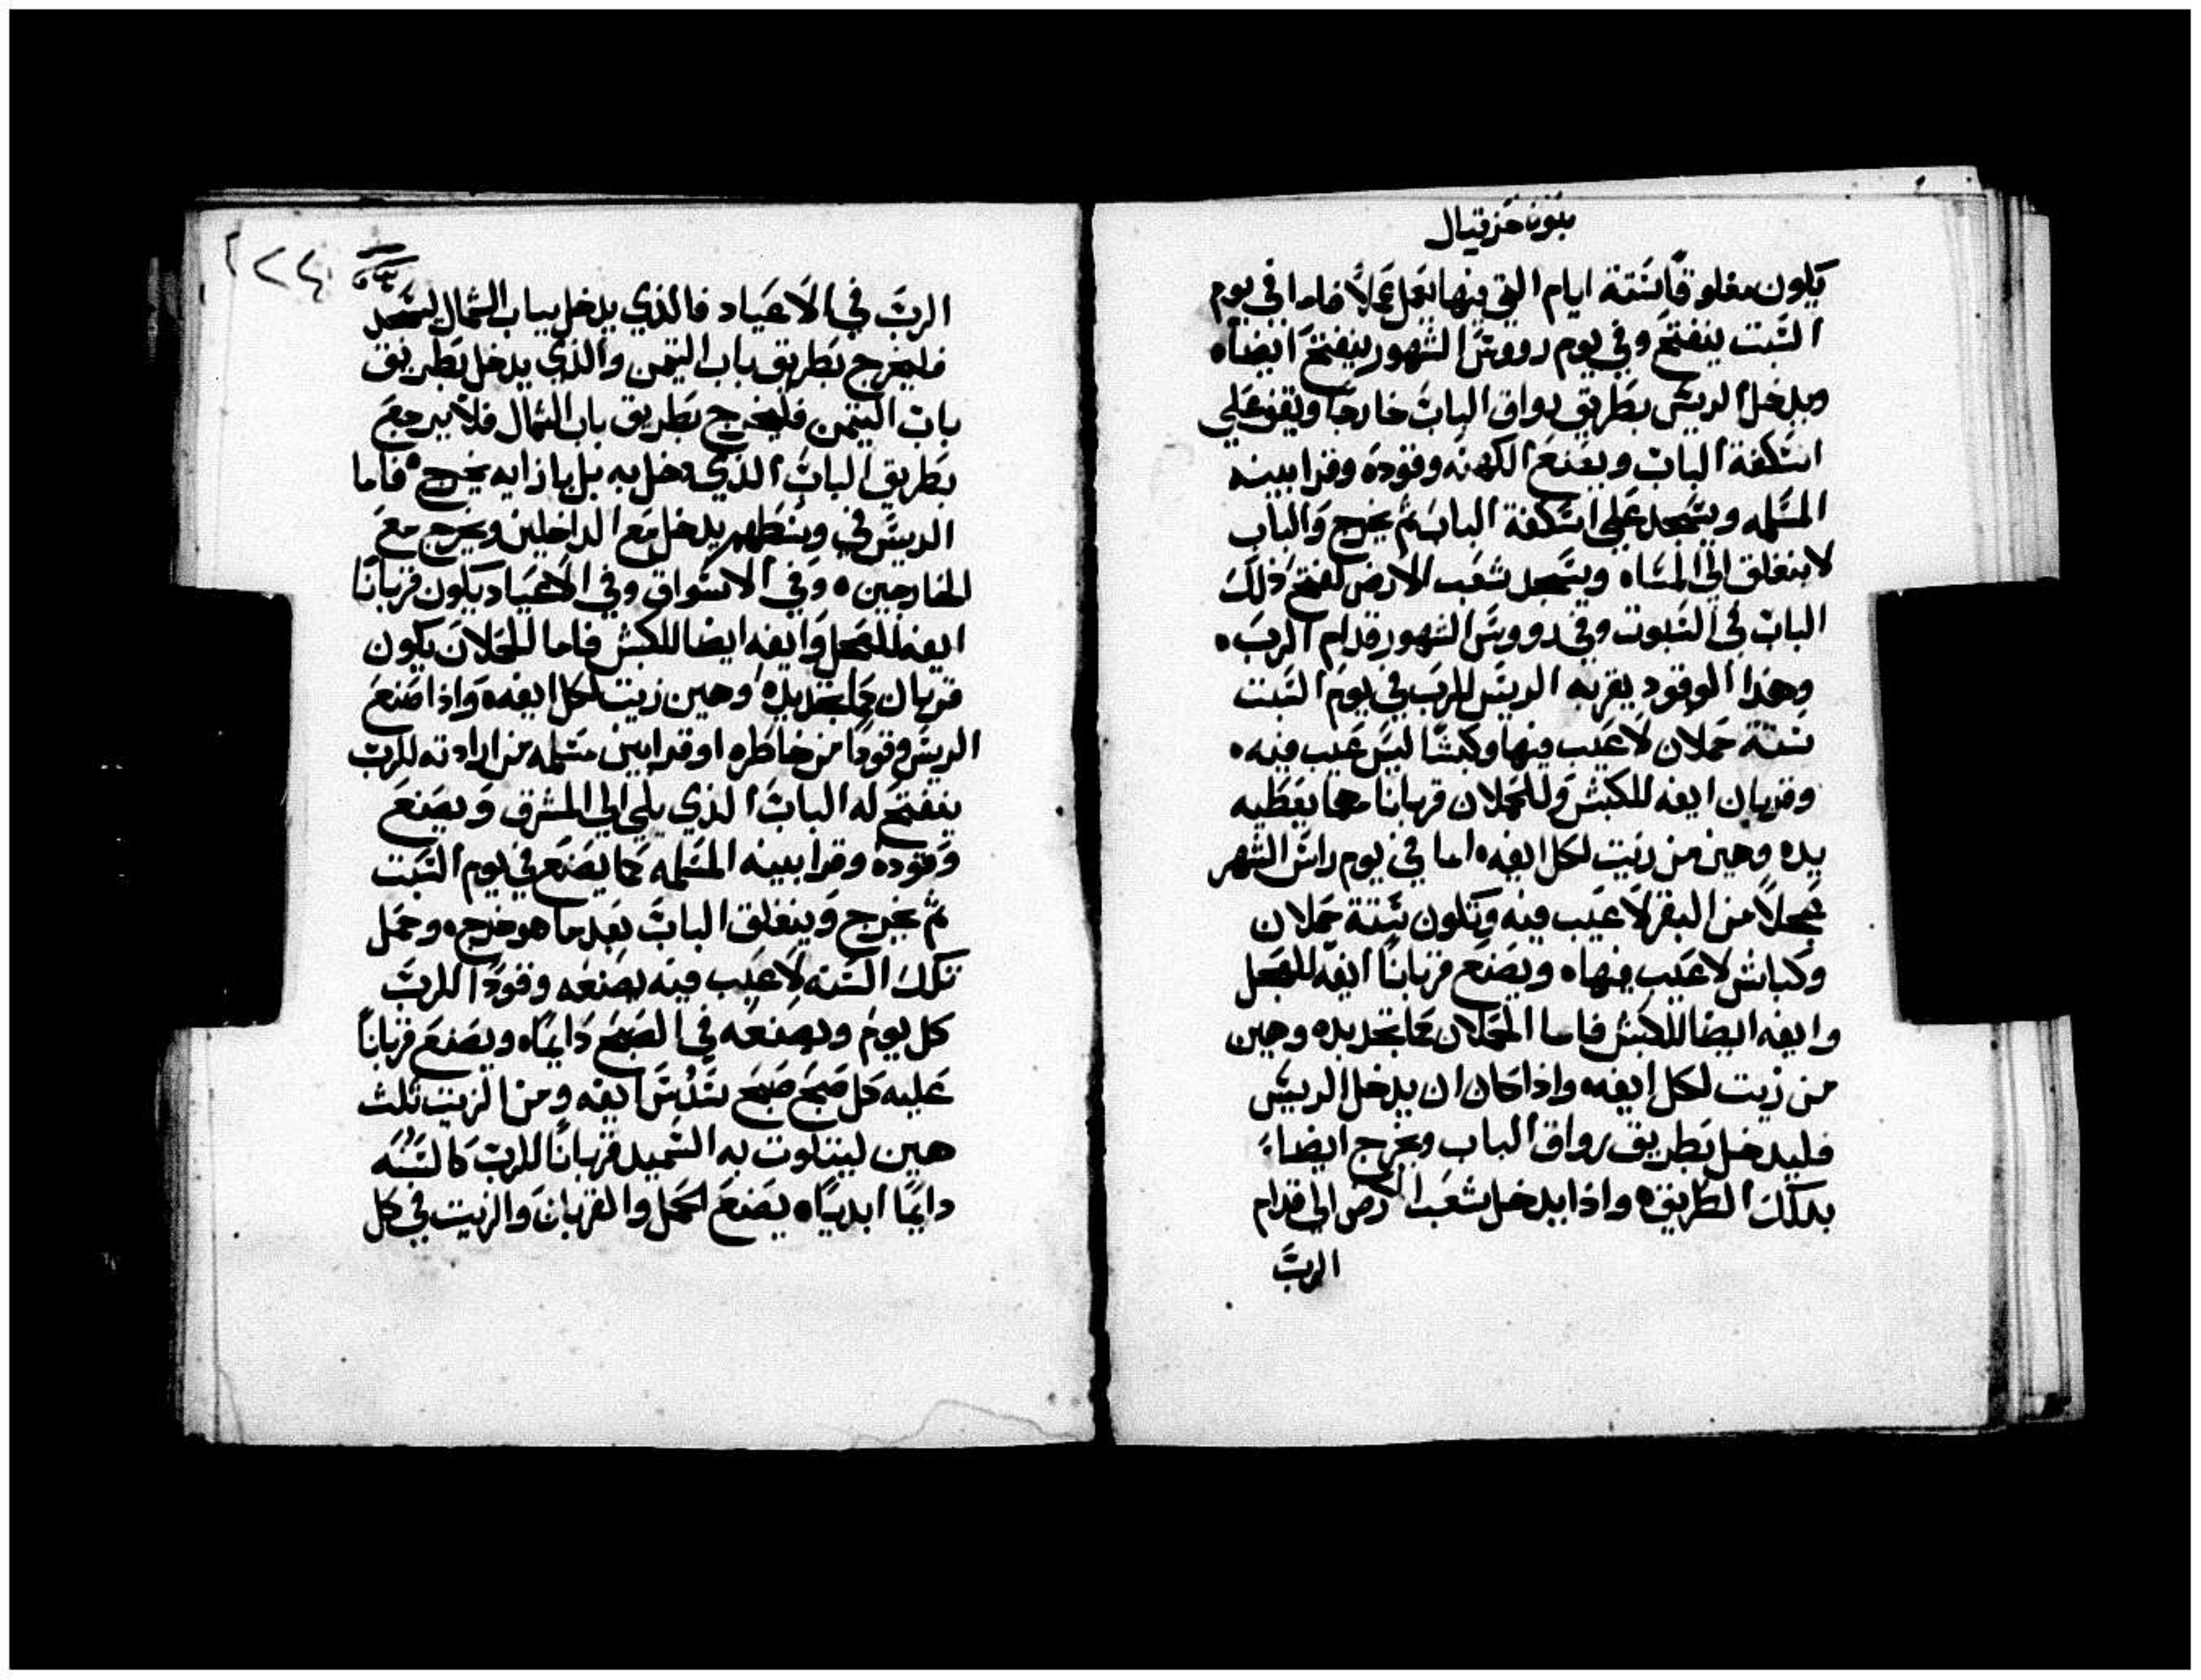 نبوة حزقيال
يكون مغلوقًا ستة ايام التي فيها يعمل عملاً فاما في يوم
السبت ينفتح وفي يوم رووس الشهور ينفتح ايضاه
ويدخل الريس بطريق رواق الباب خارجا ويقف علي
اسكفة الباب ويصنع الكهنه وقوده وقرابينه
المسلمه ويسجد علي اسكفة الباب ثم يخرج والباب
لا ينغلق الي المساه ويسجد شعب الارض لفتح ذلك
الباب في السبوت وفي رووس الشهور قدام الرب ه
وهذا الوقود يقربه الريس للرب في يوم السبت
ستة حملان لا عيب فيها وكبشًا ليس عيب فيه ه
وقربان ايفه للكبش وللحملان قربانا مما يعطيه
يده وهين من زيت لكل ايفه ه اما في يوم راس الشهر
عجلاً من البقر لا عيب فيه وتكون ستة حملان
وكباش لا عيب فيها ه ويصنع قربانًا ايفه للعجل
وايفه ايضا للكبش فاما الحملان كما تجد يده وهين
من زيت لكل ايفه ه واذا كان ان يدخل الريس
فليدخل بطريق رواق الباب ويخرج ايضا
بتلك الطريق ه واذا يدخل شعب الارض الي قدام
الرب
٢٢٤
الرب في الاعياد فالذي يدخل بباب الشمال ليسجد
فليخرج بطريق باب التيمن والذي يدخل بطريق
باب التيمن فليخرج بطريق باب الشمال فلا يرجع
بطريق الباب الذي دخل به بل بازايه يخرج ه فاما
الريس في وسطهم يدخل مع الداخلين ويخرج مع
الخارجين ه وفي الاسواق وفي الاعياد يكون قربانًا
ايفه للعجل وايفه ايضا للكبش فاما للحملان يكون
قربان كما تجد يده وهين زيت لكل ايفه ه واذا صنع
الريس وقودًا من خاطره او قرابين مسلمه من ارادته للرب
ينفتح له الباب الذي يلي الي المشرق ويصنع
وقوده وقرابينه المسلمه كما يصنع في يوم السبت
ثم يخرج وينغلق الباب بعد ما هو خرج ه وحمل
تلك السنه لا عيب فيه يصنعه وقودًا للرب
كل يوم ويصنعه في الصبح دايمًا ه ويصنع قربانًا
عليه كل صبح صبح سدس ايفه ومن الزيت ثلث
هين ليتلوت به السميد قربانًا للرب كالسنه
دايمًا ابديًا ه يصنع الحمل والقربان والزيت في كل